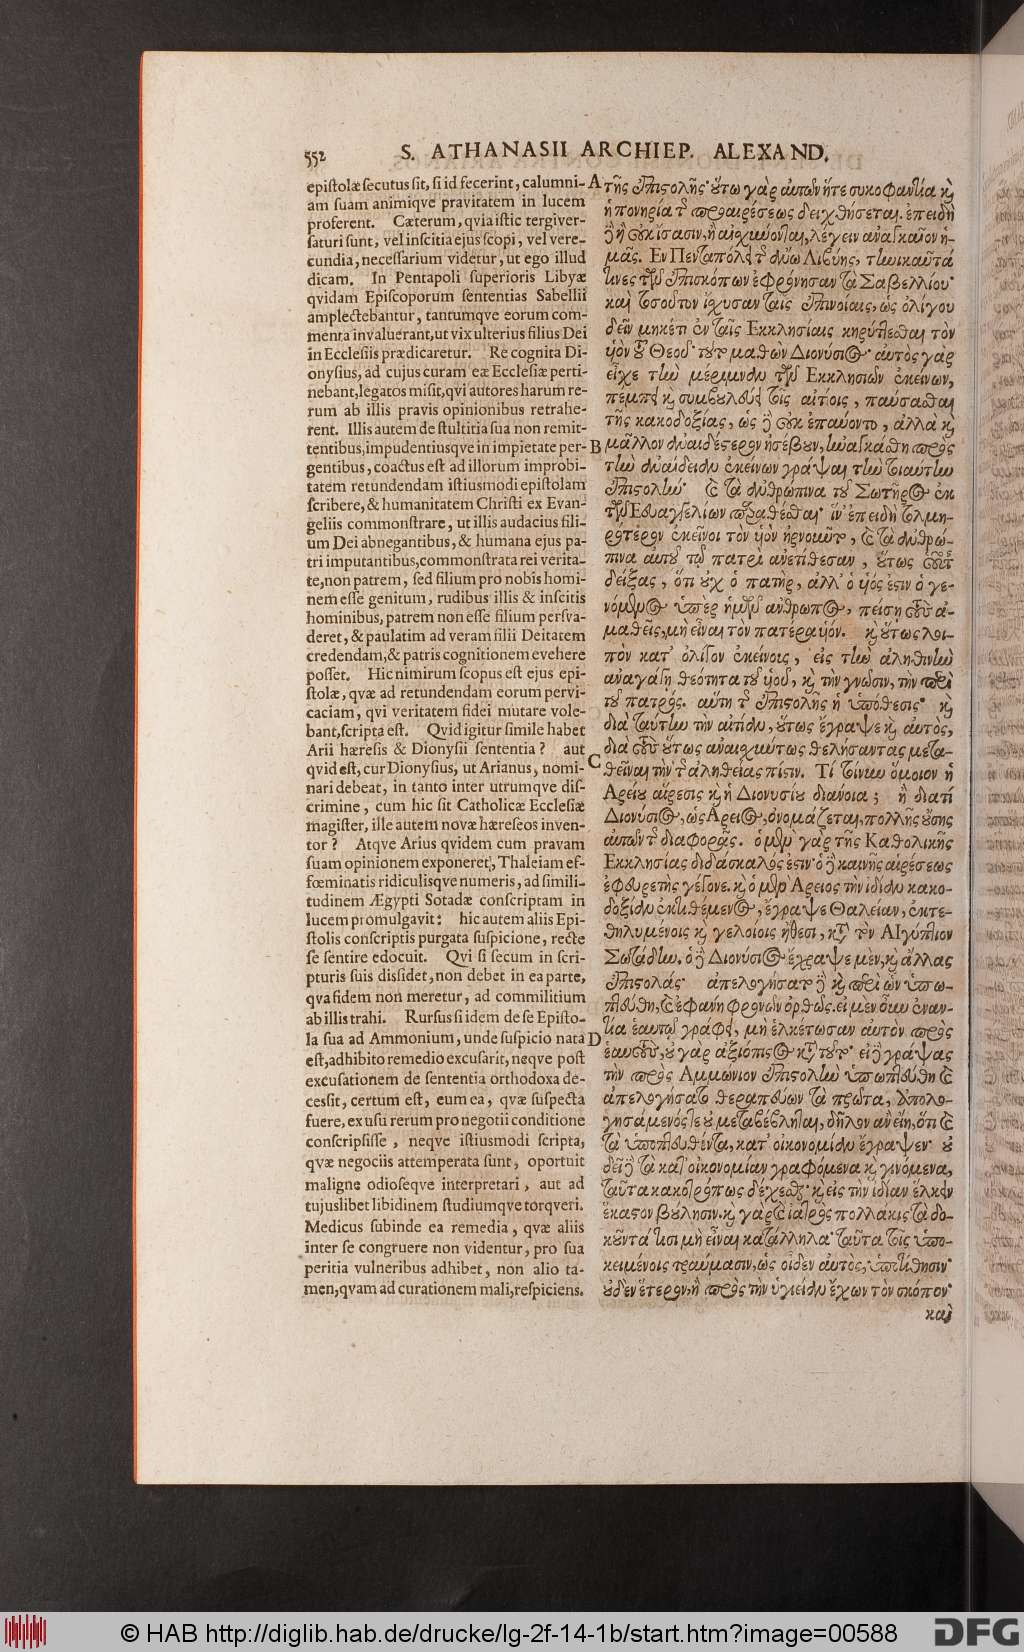 552 S. ATHANASII ARCHIEP. ALEXAND.
epistolæ secutus sit, si id fecerint, calumni-
am suam animique pravitatem in lucem
proferent. Cæterum, qvia istic tergiver-
saturi sunt, vel inscitia ejus scopi, vel vere-
cundia, necessarium videtur, ut ego illud
dicam. In Pentapoli superioris Libyæ
qvidam Episcoporum sententias Sabellii
amplectebantur, tantumqve eorum com-
menta invaluerant, ut vix ulterius filius Dei
in Ecclesiis prædicaretur. Re cognita Di-
onysius, ad cujus curam eæ Ecclesiæ perti-
nebant, legatos misit, qvi autores harum re-
rum ab illis pravis opinionibus retrahe-
rent. Illis autem de stultitia sua non remit-
tentibus, impudentiusqve in impietate per-
gentibus, coactus est ad illorum improbi-
tatem retundendam istiusmodi epistolam
scribere, & humanitatem Christi ex Evan-
geliis commonstrare, ut illis audacius fili-
um Dei abnegantibus, & humana ejus pa-
tri imputantibus, commonstrata rei verita-
te, non patrem, sed filium pro nobis homi-
nem esse genitum, rudibus illis & inscitis
hominibus, patrem non esse filium persva-
deret, & paulatim ad veram filii Deitatem
credendam, & patris cognitionem evehere
posset. Hic nimirum scopus est ejus epi-
stolæ, qvæ ad retundendam eorum pervi-
caciam, qvi veritatem fidei mutare vole-
bant, scripta est. Qvid igitur simile habet
Arii hæresis & Dionysii sententia? aut
qvid est, cur Dionysius, ut Arianus, nomi-
nari debeat, in tanto inter utrumqve dis-
crimine, cum hic sit Catholicæ Ecclesiæ
magister, ille autem novæ hæreseos inven-
tor? Atqve Arius qvidem cum pravam
suam opinionem exponeret, Thaleiam ef-
fœminatis ridiculisqve numeris, ad simili-
tudinem Ægypti Sotadæ conscriptam in
lucem promulgavit: hic autem aliis Epi-
stolis conscriptis purgata suspicione, recte
se sentire edocuit. Qvi si secum in scri-
pturis suis dissidet, non debet in ea parte,
qva fidem non meretur, ad commilitium
ab illis trahi. Rursus si idem de se Episto-
la sua ad Ammonium, unde suspicio nata
est, adhibito remedio excusarit, neqve post
excusationem de sententia orthodoxa de-
cessit, certum est, eum ea, qvæ suspecta
fuere, ex usu rerum pro negotii conditione
conscripsisse, neqve istiusmodi scripta,
qvæ negociis attemperata sunt, oportuit
maligne odioseqve interpretari, aut ad
tujuslibet libidinem studiumqve torqveri.
Medicus subinde ea remedia, qvæ aliis
inter se congruere non videntur, pro sua
peritia vulneribus adhibet, non alio ta-
men, qvam ad curationem mali, respiciens.
A
B
C
D
τῆς ἐπιστολῆς· οὕτω γὰρ αὐτῶν ἥτε συκοφαντία καὶ
ἡ πονηρία τῆς προαιρέσεως δειχθήσεται. ἐπειδὴ
δὲ ἢ οὐκ ἴσασιν, ἢ αἰσχύνονται, λέγειν ἀναγκαῖον ἡ-
μᾶς. Ἐν Πενταπόλει τῆς ἄνω Λιβύης, τηνικαῦτά
τινες τῶν ἐπισκόπων ἐφρόνησαν τὰ Σαβελλίου·
καὶ τοσοῦτον ἴσχυσαν ταῖς ἐπινοίαις, ὡς ὀλίγου
δεῖν μηκέτι ἐν ταῖς Εκκλησίαις κηρύττεσθαι τὸν
υἱὸν τοῦ Θεοῦ· τοῦτο μαθὼν Διονύσιος· αὐτὸς γὰρ
εἶχε τὴν μέριμναν τῶν Εκκλησιῶν ἐκείνων,
πέμπει καὶ συμβουλεύει τοῖς αἰτίοις, παύσασθαι
τῆς κακοδοξίας, ὡς δὲ οὐκ ἐπαύοντο, ἀλλὰ καὶ
μᾶλλον ἀναιδέστερον ἠσέβουν, ἠναγκάσθη πρὸς
τὴν ἀναίδειαν ἐκείνων γράψαι τὴν τοιαύτην
ἐπιστολήν· καὶ τὰ ἀνθρώπινα τοῦ Σωτῆρος ἐκ
τῶν Εὐαγγελίων παραθέσθαι· ἵν' ἐπειδὴ τολμη-
ρότερον ἐκεῖνοι τὸν υἱὸν ἠρνοῦντο, καὶ τὰ ἀνθρώ-
πινα αὐτοῦ τῷ πατρὶ ἀνετίθεσαν, οὕτως οὗτος
δείξας, ὅτι οὐχ ὁ πατὴρ, ἀλλ' ὁ υἱός ἐστιν ὁ γε-
νόμενος ὑπὲρ ἡμῶν ἄνθρωπος, πείσῃ τοὺς ἀ-
μαθεῖς, μὴ εἶναι τὸν πατέρα υἱόν. καὶ οὕτως λοι-
πὸν κατ' ὀλίγον ἐκείνοις, εἰς τὴν ἀληθινὴν
ἀναγάγῃ θεότητα τοῦ υἱοῦ, καὶ τὴν γνῶσιν, τὴν περὶ
τοῦ πατρός. αὕτη τῆς ἐπιστολῆς ἡ ὑπόθεσις· καὶ
διὰ ταύτην τὴν αἰτίαν, οὕτως ἔγραψε καὶ αὐτὸς,
διὰ τοὺς οὕτως ἀναισχύντως θελήσαντας μετα-
θεῖναι τὴν τῆς ἀληθείας πίστιν. Τί τοίνυν ὅμοιον ἡ
Αρείου αἵρεσις καὶ ἡ Διονυσίου διάνοια; ἢ διατί
Διονύσιος, ὡς Αρειος, ὀνομάζεται, πολλῆς οὔσης
αὐτῶν τῆς διαφορᾶς. ὁ μὲν γὰρ τῆς Καθολικῆς
Εκκλησίας διδάσκαλός ἐστιν· ὁ δὲ καινῆς αἱρέσεως
ἐφευρετὴς γέγονε. καὶ ὁ μὲν Αρειος τὴν ἰδίαν κακο-
δοξίαν ἐκτιθέμενος, ἔγραψε Θαλείαν, ἐκτε-
θηλυμένοις καὶ γελοίοις ἤθεσι, κατὰ τὸν ΑΙγύπτιον
Σωτάδην. ὁ δὲ Διονύσιος ἔγραψε μὲν, καὶ ἄλλας
ἐπιστολάς· ἀπελογήσατο δὲ καὶ περὶ ὧν ὑπω-
πτεύθη, καὶ ἐφάνη φρονῶν ὀρθῶς. εἰ μὲν οὖν ἐναν-
τία ἑαυτῷ γράφει, μὴ ἑλκέτωσαν αὐτὸν πρὸς
ἑαυτοὺς, οὐ γὰρ ἀξιόπιστος κατὰ τοῦτο· εἰ δὲ γράψας
τὴν πρὸς Αμμώνιον ἐπιστολὴν ὑπωπτεύθη καὶ
ἀπελογήσατο θεραπεύων τὰ πρῶτα, ἀπολο-
γησάμενός τε οὐ μεταβέβληται, δῆλον ἂν εἴη, ὅτι καὶ
τὰ ὑποπτευθέντα, κατ' οἰκονομίαν ἔγραψεν· οὐ
δεῖ δὲ τὰ κατ' οἰκονομίαν γραφόμενα καὶ γινόμενα,
ταῦτα κακοτρόπως δέχεσθαι· καὶ εἰς τὴν ἰδίαν ἕλκειν
ἕκαστον βούλησιν. καὶ γὰρ καὶ ἰατρὸς πολλάκις τὰ δο-
κοῦντά τισι μὴ εἶναι κατάλληλα· ταῦτα τοῖς ὑπο-
κειμένοις τραύμασιν, ὡς οἶδεν αὐτὸς, ὑποτίθησιν·
οὐδὲν ἕτερον, ἢ πρὸς τὴν ὑγιείαν ἔχων τὸν σκόπον·
καὶ
© HAB http://diglib.hab.de/drucke/lg-2f-14-1b/start.htm?image=00588
DFG